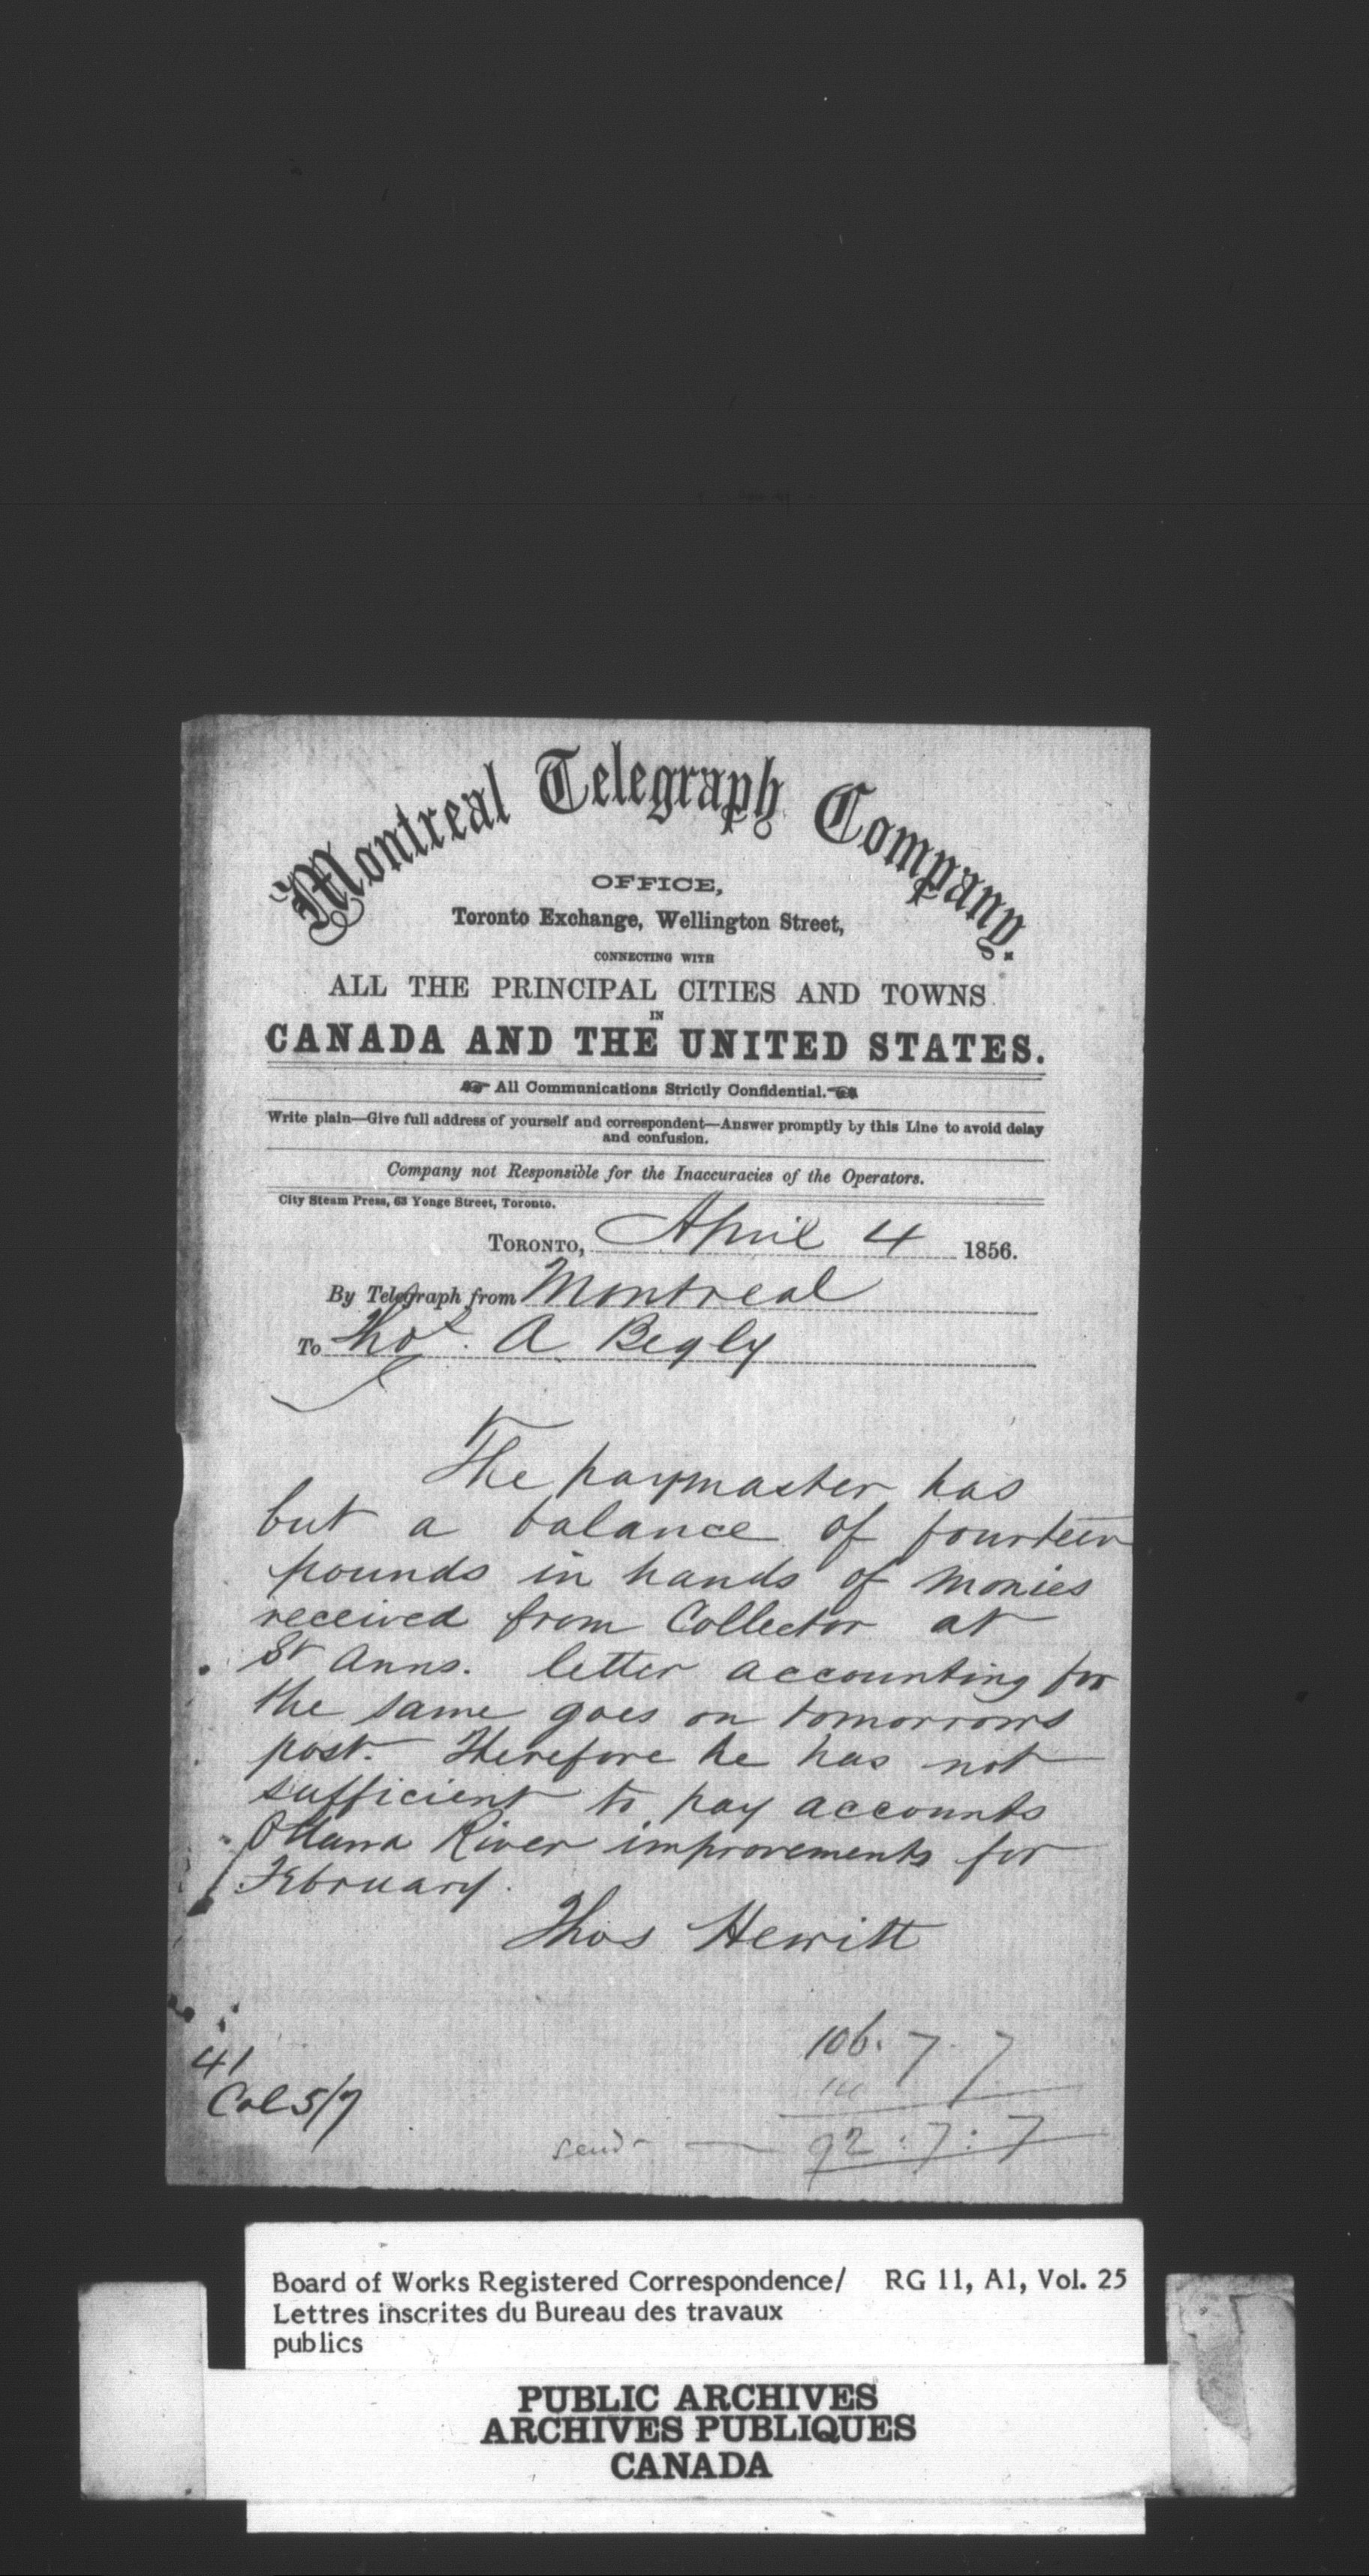 Montreal Telegraph Company.
OFFICE,
Toronto Exchange, Wellington Street,
CONNECTING WITH
ALL THE PRINCIPAL CITIES AND TOWNS
IN
CANADA AND THE UNITED STATES.
All Communications Strictly Confidential.
Write plain—Give full address of yourself and correspondent—Answer promptly by this Line to avoid delay
and confusion.
Company not Responsible for the Inaccuracies of the Operators.
City Steam Press, 63 Yonge Street, Toronto.
TORONTO, April 4 1856.
By Telegraph from Montreal
To Thos. A Begly
The paymaster has
but a balance of fourteen
pounds in hands of monies
received from Collector at
St Anns. letter accounting for
the same goes on tomorrows
post. Therefore he has not
sufficient to pay accounts
Ottawa River improvements for
February.
Thos Hewitt
106. 7. 7
41
14
Col 5/7
send — 92:7:7
Board of Works Registered Correspondence/ RG 11, A1, Vol. 25
Lettres inscrites du Bureau des travaux
publics
PUBLIC ARCHIVES
ARCHIVES PUBLIQUES
CANADA